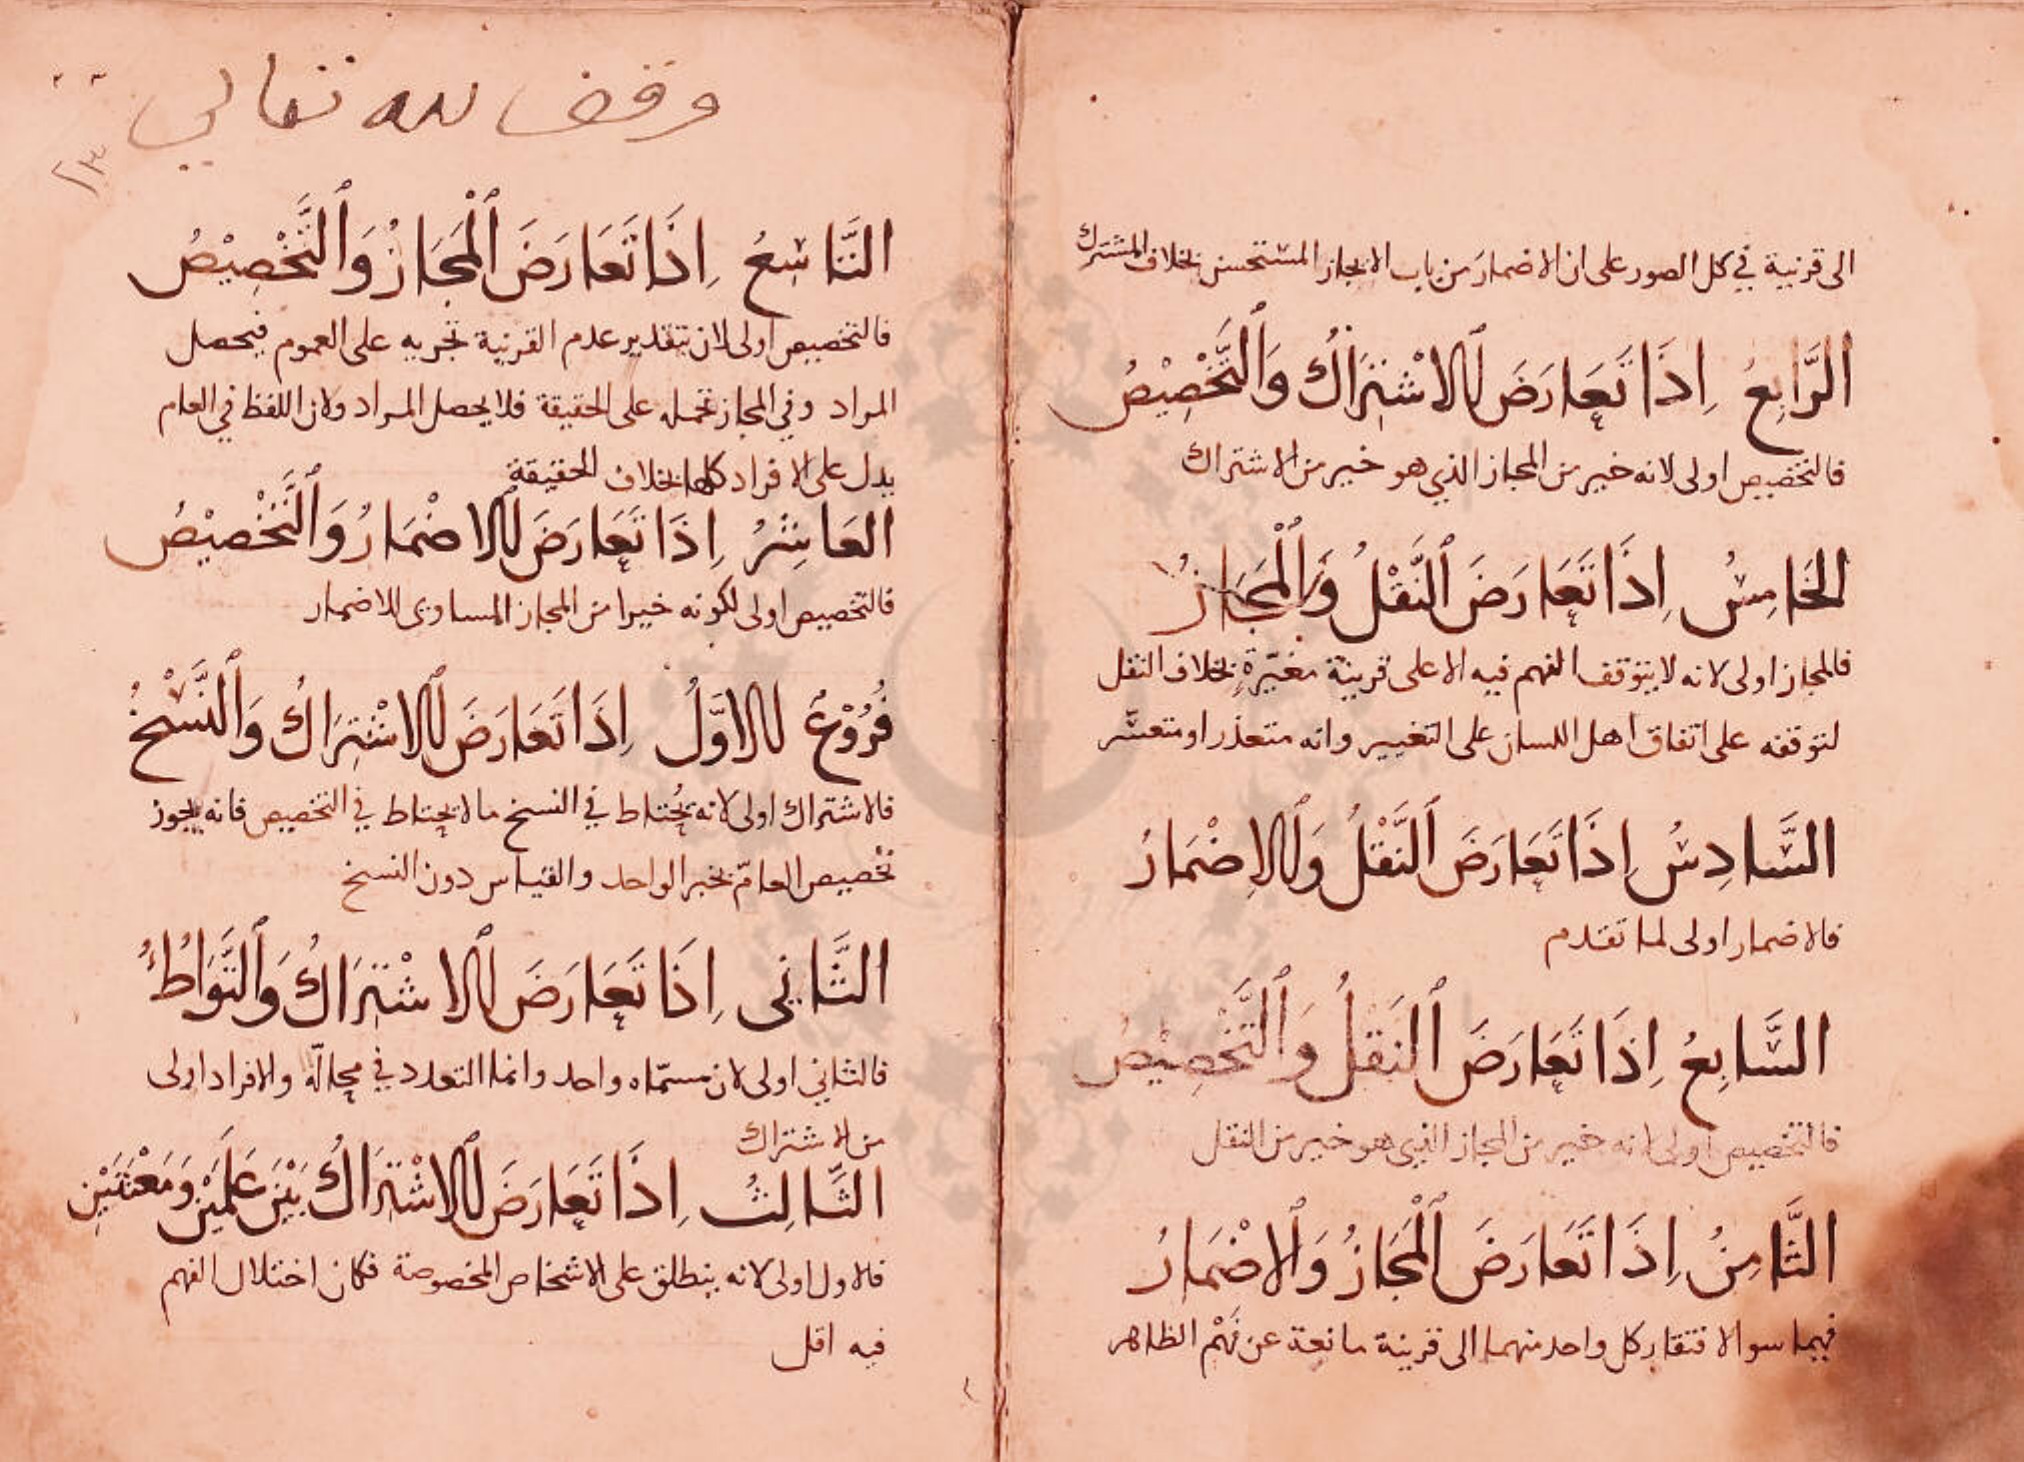 الى قرنية في كل الصور على ان الاضمار من باب الايجاز المستحسن بخلاف المشترك
الرَّابِعُ اِذَا تَعَارَضَ الاشْتِرَاكُ وَالتَّخْصِيْصُ
فالتخصيص اولى لانه خير من المجاز الذي هو خير من الاشتراك
الخَامِسُ اِذَا تَعَارَضَ النَّقْلُ وَالْمَجَازُ
فالمجاز اولى لانه لا يتوقف الفهم فيه الا على قرينة مغيّرةٍ بخلاف النقل
لتوقفه على اتفاق اهل اللسان على التغيير وانه متعذر او متعسّر
السَّادِسُ اِذَا تَعَارَضَ النَّقْلُ وَالاِضْمَارُ
فالاضمار اولى لما تقدم
السَّابِعُ اِذَا تَعَارَضَ النَقلُ وَالتَّخْصِيْصُ
فالتخصيص اولى لانه خير من المجاز الذي هو خير من النقل
الثَّامِنُ اِذَا تَعَارَضَ الْمَجَازُ وَالاضْمَارُ
فهما سوا لافتقار كل واحد منهما الى قرينة مانعة عن فَهْم الظاهر
وقف لله تعالى
التَّاسِعُ اِذَا تَعَارَضَ الْمَجَازُ وَالتَّخْصِيْصُ
فالتخصيص اولى لان بتقدير عدم القرنية تجريه على العموم فيحصل
المراد وفي المجاز تحمله على الحقيقة فلا يحصل المراد ولان اللفظ في العام
يدل على الافراد كلها بخلاف الحقيقة
العَاشِرُ اِذَا تَعَارَضَ الاضْمَارُ وَالتَّخْصِيْصُ
فالتخصيص اولى لكونه خيرا من المجاز المساوى للاضمار
فُرُوْعٌ الاَوَّلُ اِذَا تَعَارَضَ الاشْتِرَاكُ وَالنَّسْخُ
فالاشتراك اولى لانه يُحتاط في النسخ ما لا يحتاط في التخصيص فانه يجوز
تخْصيص العامّ بخبر الواحد والقياس دون النسخ
الثَّانِى اِذَا تَعَارَضَ الاشْتِرَاكُ وَالتَّوَاطُءُ
فالثاني اولى لان مسمّاه واحد وانما التعدد في محالّه والافراد اولى
من الاشتراك
الثَّالِثُ اِذَا تَعَارَضَ الاشْتِرَاكُ بَيْنَ عَلَمَيْنِ وَمَعْنَيَيْنِ
فالاول اولى لانه ينطلق على الاشخاص المخصوصة فكان اختلال الفهم
فيه اقل